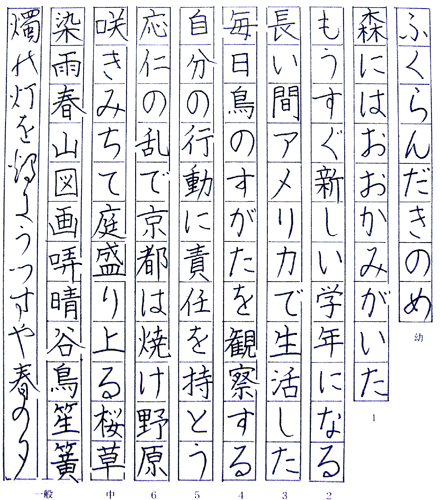 ふくらんだきのめ
幼
森にはおおかみがいた
1
もうすぐ新しい学年になる
2
長い間アメリカで生活した
3
毎日鳥のすがたを観察する
4
自分の行動に責任を持とう
5
応仁の乱で京都は焼け野原
6
咲きみちて庭盛り上る桜草
中
染雨春山図画哢晴谷鳥笙簧
燭の灯を燭にうつすや春の夕
一般